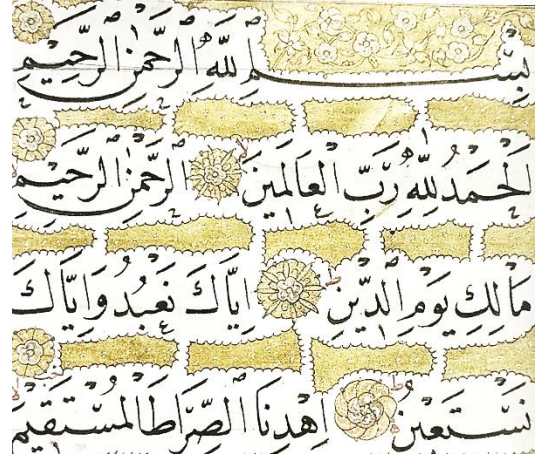 بِسْمِ اللّٰهِ الرَّحْمٰنِ الرَّحِيمِ
اَلْحَمْدُ لِلّٰهِ رَبِّ الْعَالَمِينَ الرَّحْمٰنِ الرَّحِيمِ
مَالِكِ يَوْمِ الدِّينِ اِيَّاكَ نَعْبُدُ وَاِيَّاكَ
نَسْتَعِينُ اِهْدِنَا الصِّرَاطَ الْمُسْتَقِيمَ